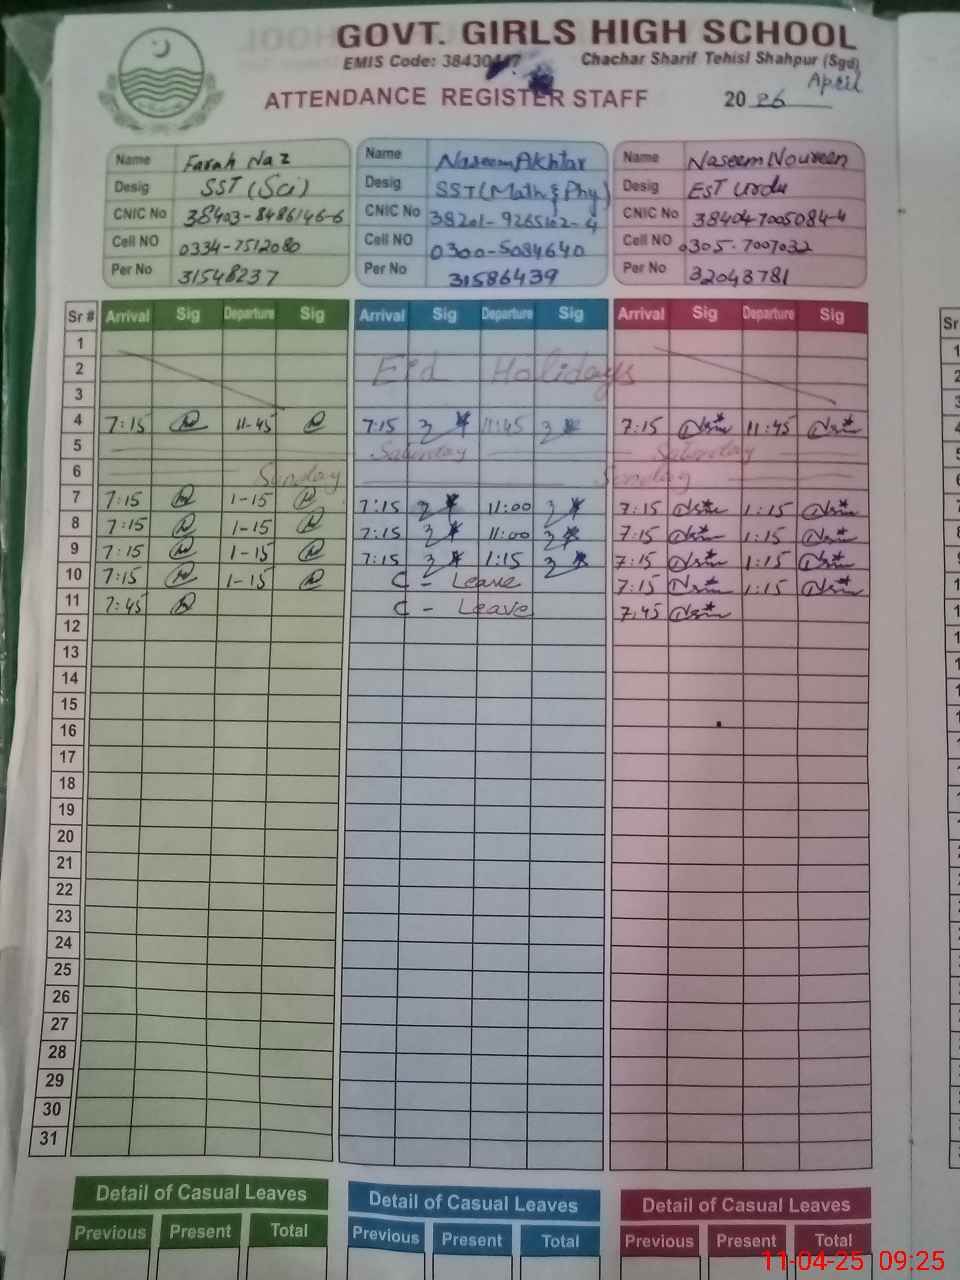 GOVT. GIRLS HIGH SCHOOL
EMIS Code: 38430447 Chachar Sharif Tehisl Shahpur (Sgd)
ATTENDANCE REGISTER STAFF 20 26 April
Name Farah Naz Name Naseem Akhtar Name Naseem Noureen
Desig SST (Sci) Desig SST (Math & Phy) Desig EST Urdu
CNIC No 38403-8486146-6 CNIC No 38201-9265102-4 CNIC No 38404-7005084-4
Cell NO 0334-7512080 Cell NO 0300-5084640 Cell NO 0305-7007032
Per No 31548237 Per No 31586439 Per No 32043781
Sr # Arrival Sig Departure Sig Arrival Sig Departure Sig Arrival Sig Departure Sig
1
2 Eid Holidays
3
4 7:15 11-45 7:15 11:45 7:15 11:45
5 Saturday Saturday
6 Sunday Sunday
7 7:15 1-15 7:15 11:00 7:15 1:15
8 7:15 1-15 7:15 11:00 7:15 1:15
9 7:15 1-15 7:15 1:15 7:15 1:15
10 7:15 1-15 C - Leave 7:15 1:15
11 7:45 C - Leave 7:45
12
13
14
15
16
17
18
19
20
21
22
23
24
25
26
27
28
29
30
31
Detail of Casual Leaves Detail of Casual Leaves Detail of Casual Leaves
Previous Present Total Previous Present Total Previous Present Total
11-04-25 09:25